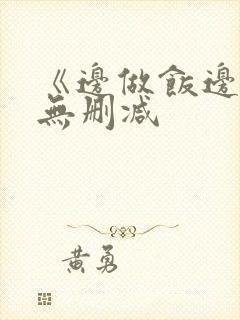 《邊做飯邊
無刪減
黃勇